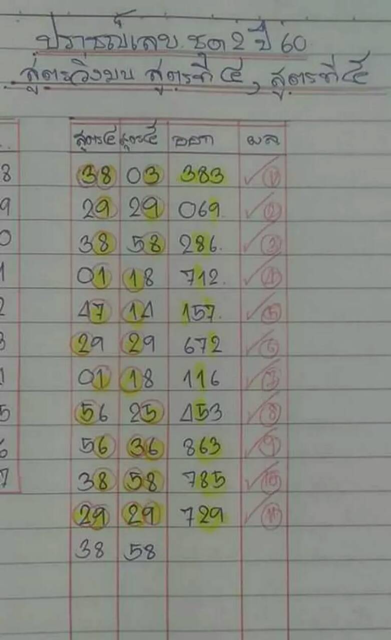 ปราชญ์เลข ชุด 2 ปี 60
สูตรวิ่งบน สูตรที่ ๔, สูตรที่ ๕
สูตร๔ สูตร๕ ออก ผล
8 38 03 383 ✓ 1
9 29 29 069 ✓ 2
0 38 58 286 ✓ 3
1 01 18 712 ✓ 4
2 47 14 157 ✓ 5
3 29 29 672 ✓ 6
1 01 18 116 ✓ 7
5 56 25 453 ✓ 8
6 56 36 863 ✓ 9
7 38 58 785 ✓ 10
29 29 729 ✓ 11
38 58